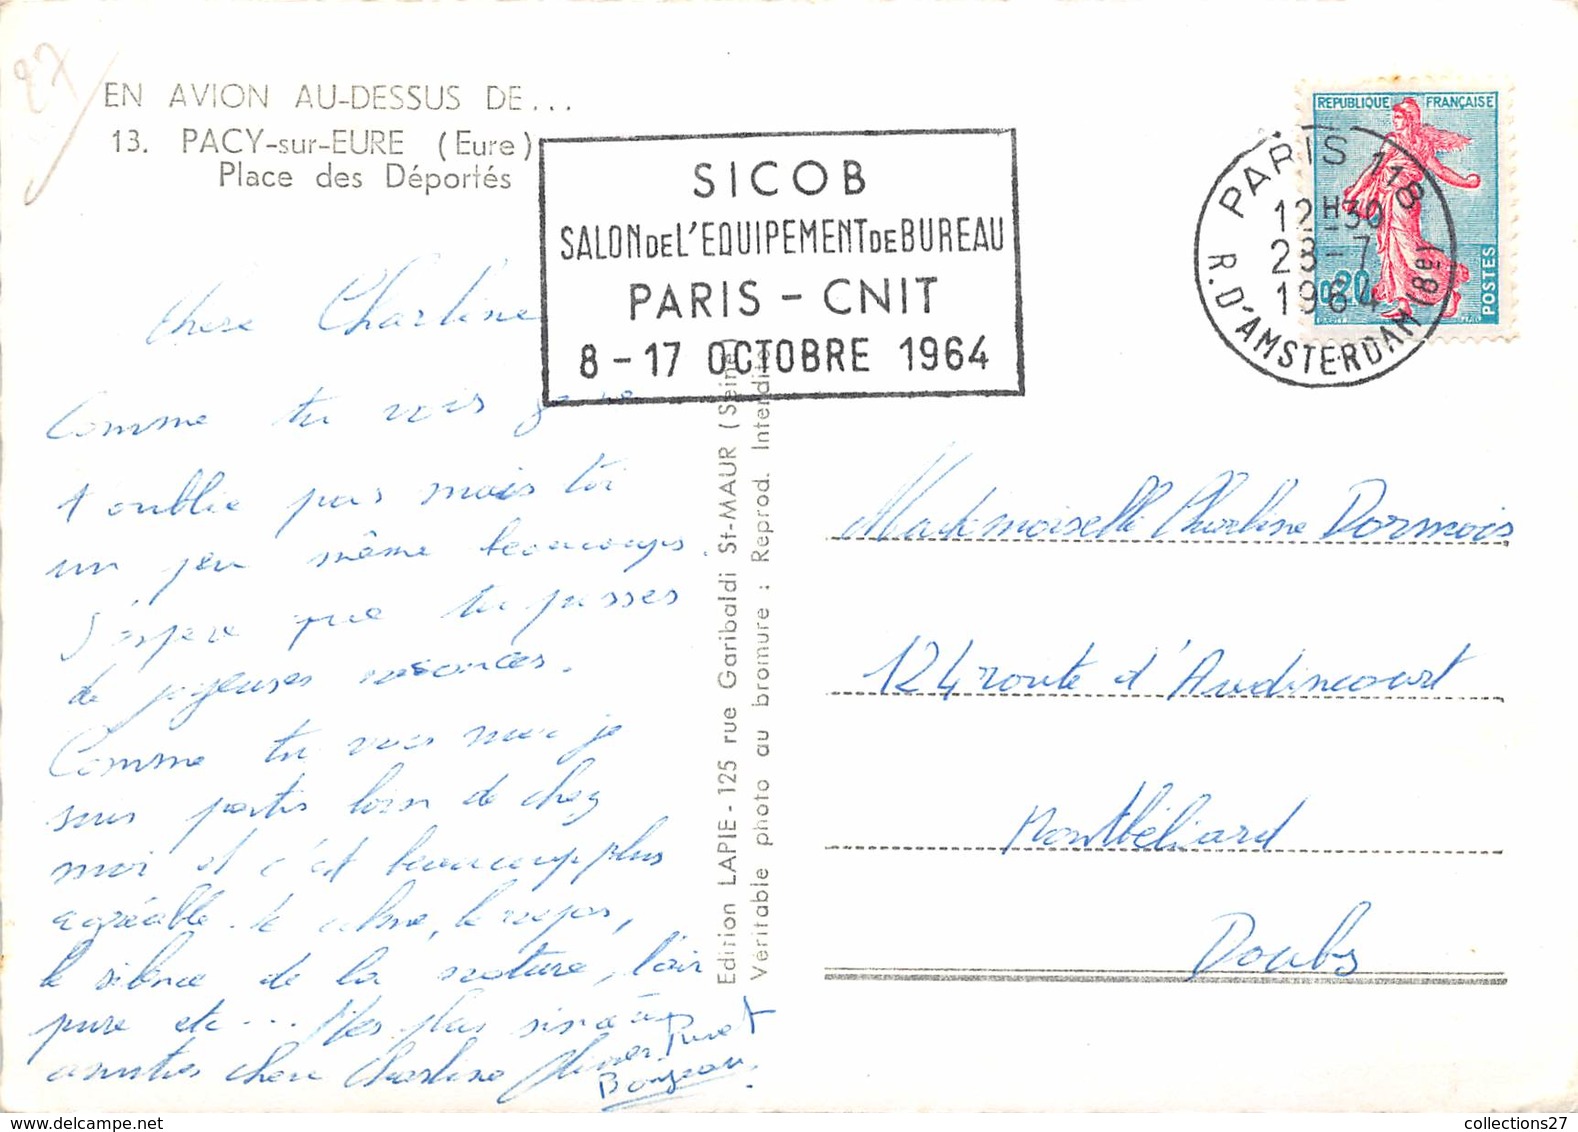 27
EN AVION AU-DESSUS DE...
13. PACY-sur-EURE (Eure)
Place des Déportés
SICOB
SALON DE L'EQUIPEMENT DE BUREAU
PARIS - CNIT
8 - 17 OCTOBRE 1964
REPUBLIQUE FRANÇAISE
0,20
POSTES
PARIS 118
12H30
28-7
1964
R. D'AMSTERDAM (8e)
Chère Charline
Comme tu vois je ne
t'oublie pas mais toi
un peu même beaucoups.
J'espere que tu passes
de joyeuses vacances.
Comme tu vois moi je
suis partis loin de chez
moi et c'est beaucoup plus
agréable. le calme, le repos,
le silence de la nature, l'air
pure etc... Mes plus sincères
amitiés chère Charline
Edition LAPIE - 125 rue Garibaldi St-MAUR (Seine)
Véritable photo au bromure : Reprod. Interdite
Mademoiselle Charline Dormois
124 route d'Audincourt
Montbéliard
Doubs
collections27